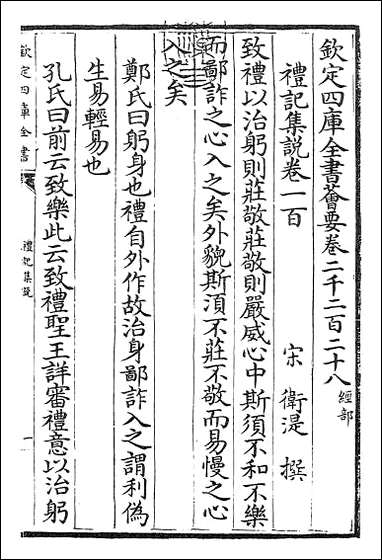 欽定四庫全書薈要卷二千二百二十八 經部
禮記集説卷一百
宋 衛湜 撰
致禮以治躬則莊敬莊敬則嚴威心中斯須不和不樂
而鄙詐之心入之矣外貌斯須不莊不敬而易慢之心
入之矣
鄭氏曰躬身也禮自外作故治身鄙詐入之謂利偽
生易輕易也
孔氏曰前云致樂此云致禮聖王詳審禮意以治躬
欽定四庫全書
禮記集説
一